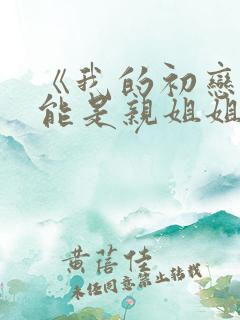 《我的初戀
能是親姐姐
黄蓓佳
未经同意禁止转载